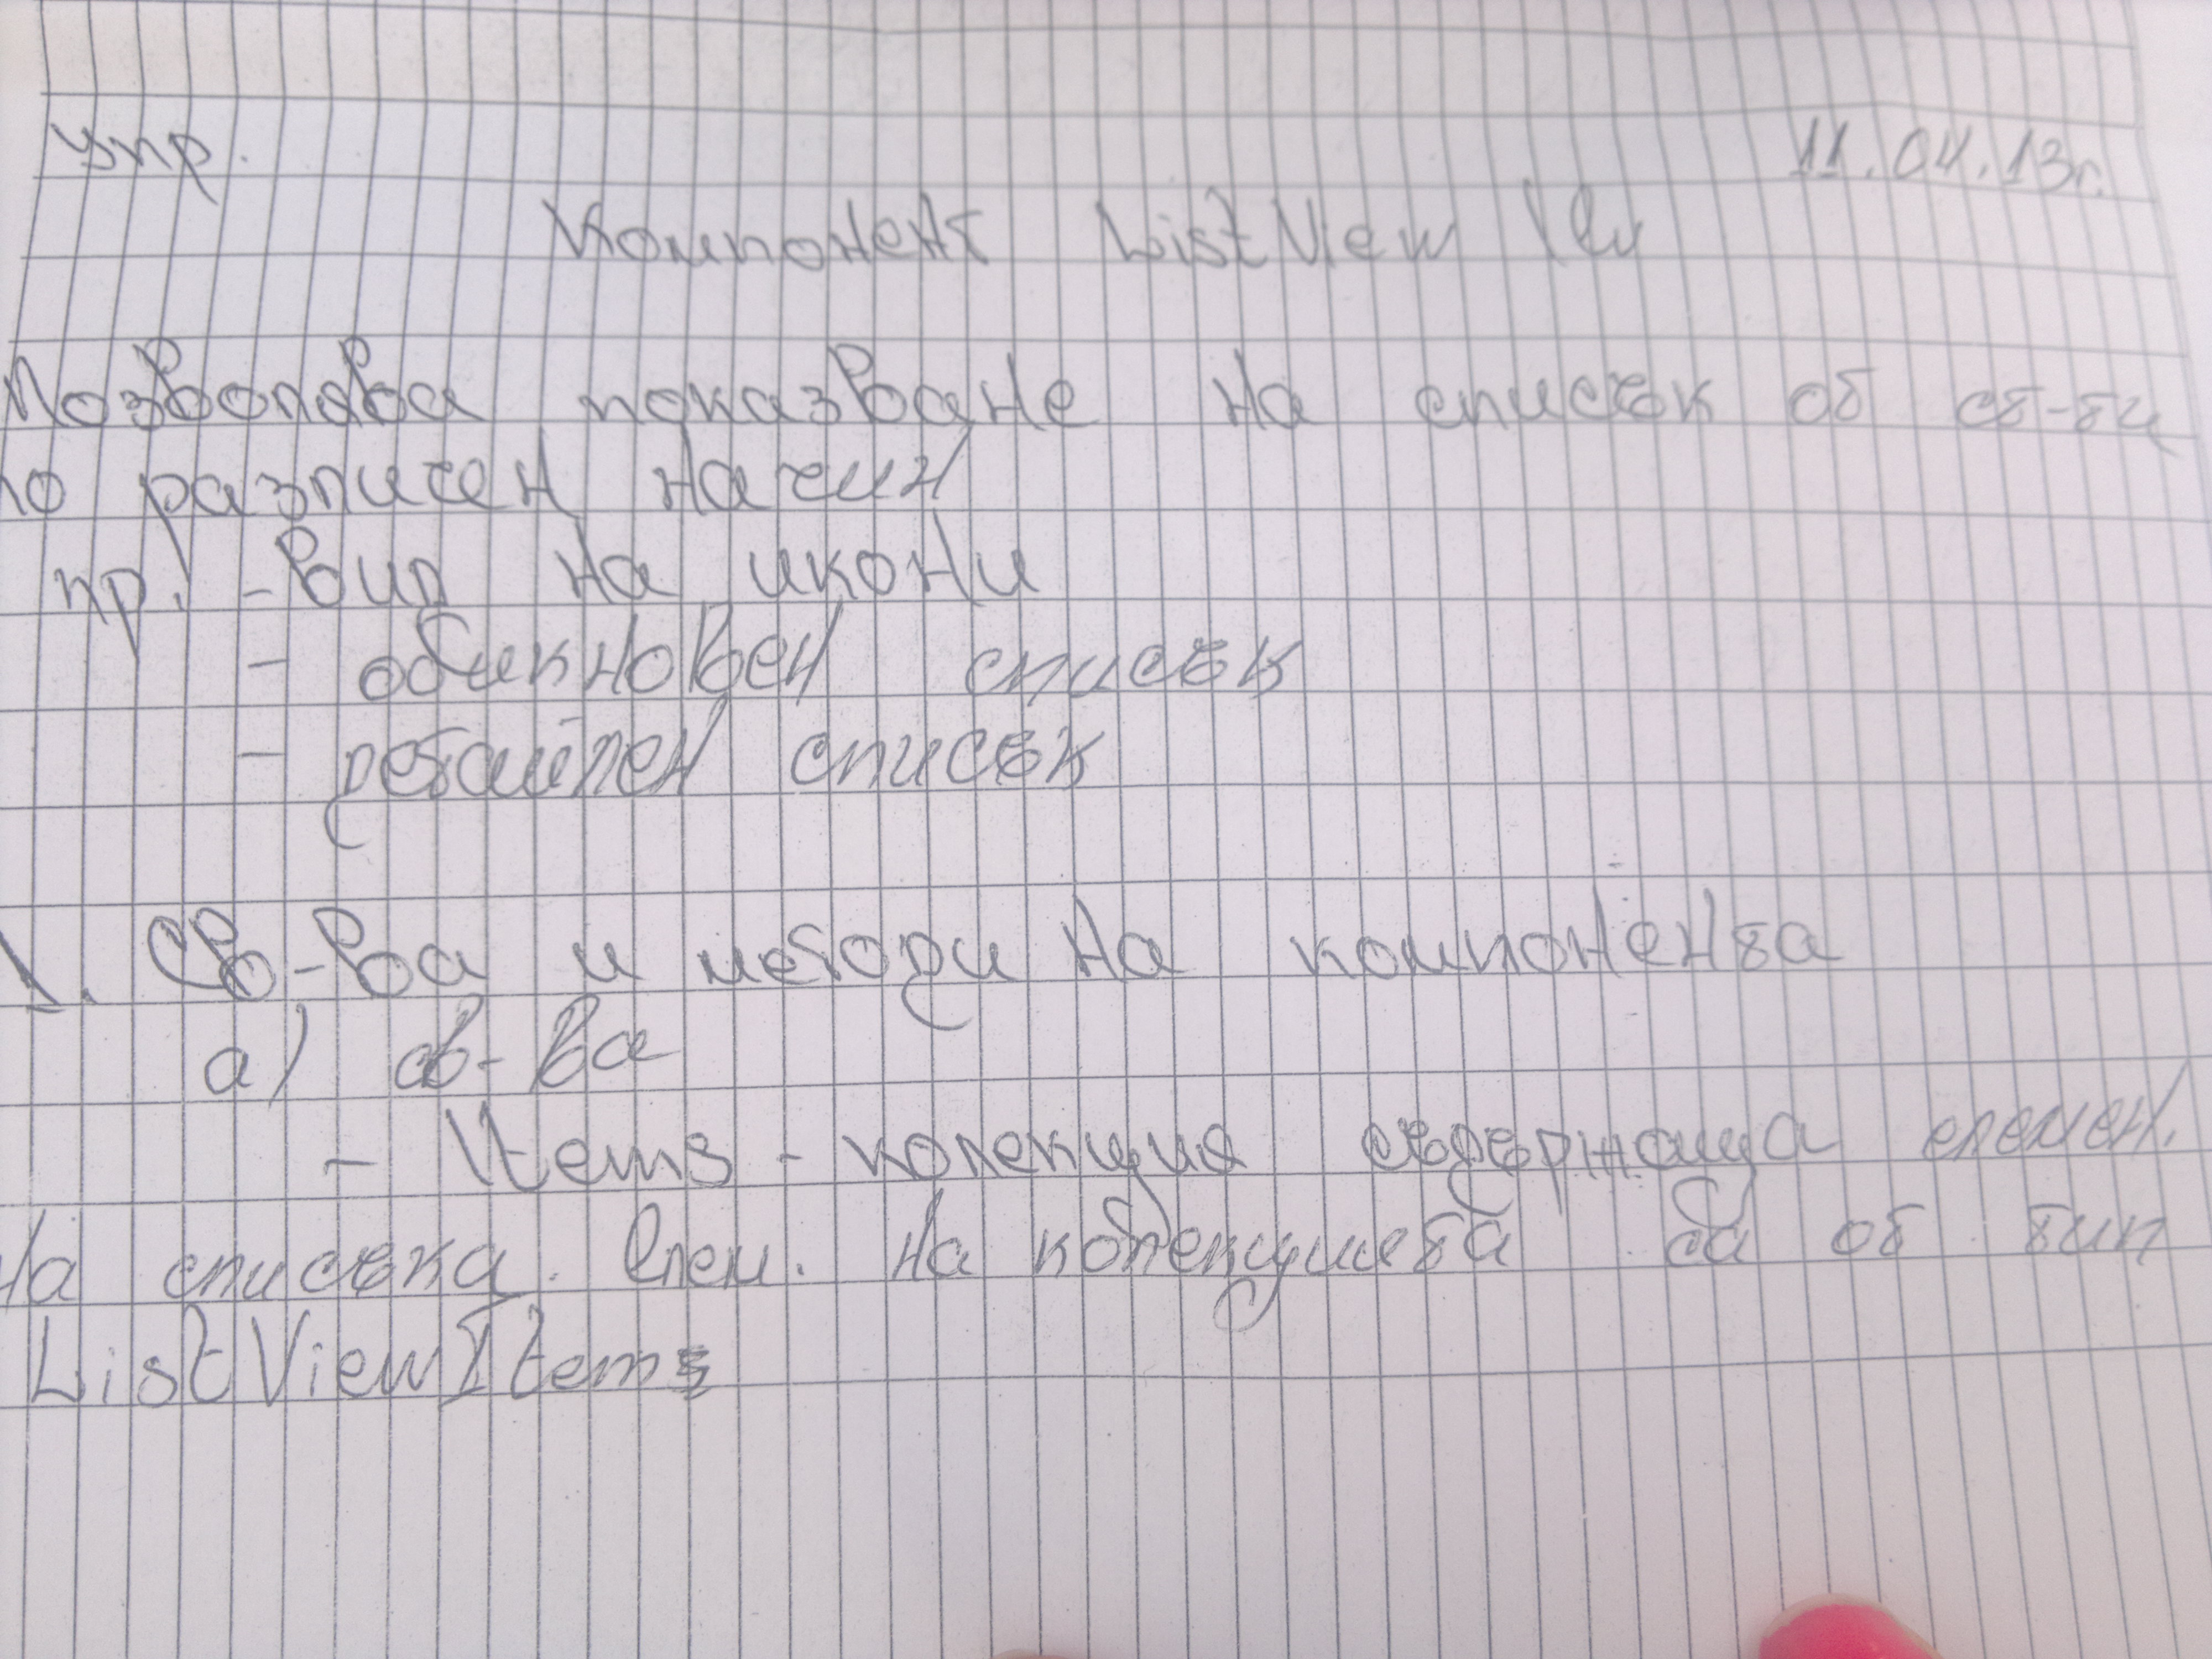 упр.
11.04.13г.
Компонент ListView lv
Позволява показване на списък от
по различен начин
пр. - вид на икони
- обикновен списък
- детайлен списък
1. Св-ва и методи на компонента
а) св-ва
- Items - колекция съдържаща елемен.
на списъка. Елем. на колекцията са от тип
ListViewItems